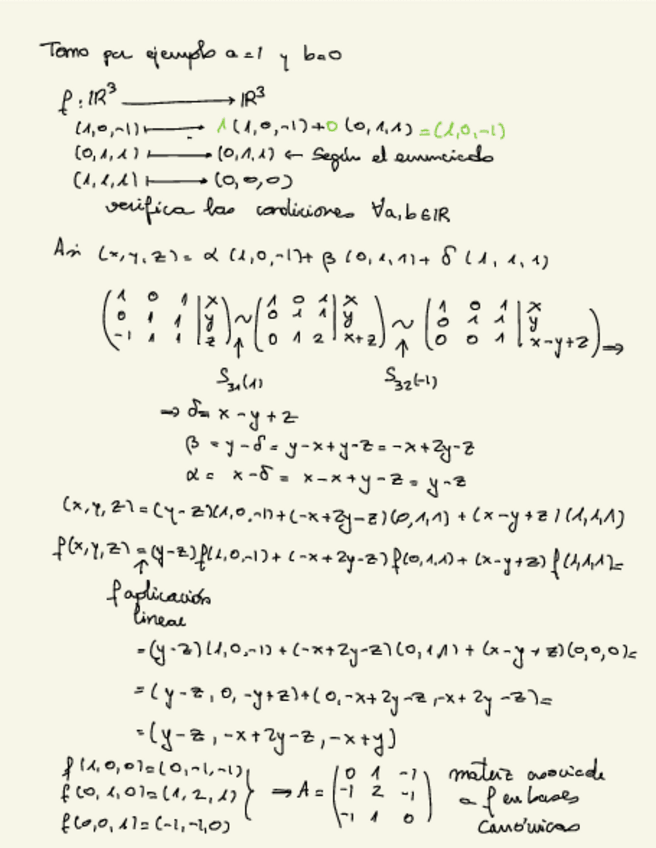 Tomo por ejemplo a=1 y b=0
f: IR³ ⟶ IR³
(1,0,-1) ⟼ 1(1,0,-1)+0(0,1,1)=(1,0,-1)
(0,1,1) ⟼ (0,1,1) ← Según el enunciado
(1,1,1) ⟼ (0,0,0)
verifica las condiciones ∀a,b∈IR
Así (x,y,z)= α(1,0,-1)+ β(0,1,1)+ δ(1,1,1)
( 1 0 1 | x ) ~ ( 1 0 1 | x ) ~ ( 1 0 1 | x )
( 0 1 1 | y ) ( 0 1 1 | y ) ( 0 1 1 | y )
( -1 1 1 | z ) ↑ ( 0 1 2 | x+z ) ↑ ( 0 0 1 | x-y+z ) ⇒
S₃₁(1) S₃₂(-1)
⇒ δ= x-y+z
β = y-δ = y-x+y-z = -x+2y-z
α = x-δ = x-x+y-z = y-z
(x,y,z)=(y-z)(1,0,-1)+(-x+2y-z)(0,1,1)+(x-y+z)(1,1,1)
f(x,y,z)=(y-z)f(1,0,-1)+(-x+2y-z)f(0,1,1)+(x-y+z)f(1,1,1)=
↑
f aplicación
lineal
=(y-z)(1,0,-1)+(-x+2y-z)(0,1,1)+(x-y+z)(0,0,0)=
=(y-z,0,-y+z)+(0,-x+2y-z,-x+2y-z)=
=(y-z,-x+2y-z,-x+y)
f(1,0,0)=(0,-1,-1)
f(0,1,0)=(1,2,1)
f(0,0,1)=(-1,-1,0)
⇒ A = ( 0 1 -1 )
( -1 2 -1 )
( -1 1 0 )
matriz asociada
a f en bases
canónicas